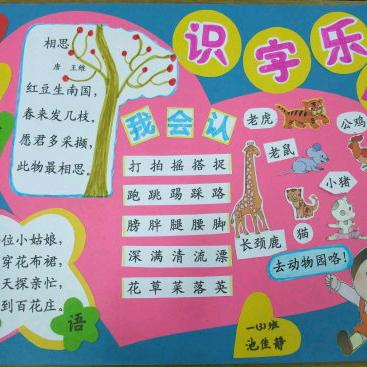 识字乐
相思
唐 王维
红豆生南国，
春来发几枝。
愿君多采撷，
此物最相思。
我会认
打拍摇搭捉
跑跳踢踩路
膀胖腿腰脚
深满清流漂
花草菜落英
老虎
公鸡
老鼠
小猪
长颈鹿
猫
去动物园咯！
位小姑娘，
穿花布裙，
天探亲忙，
到百花庄。
语
一（3）班
池佳静